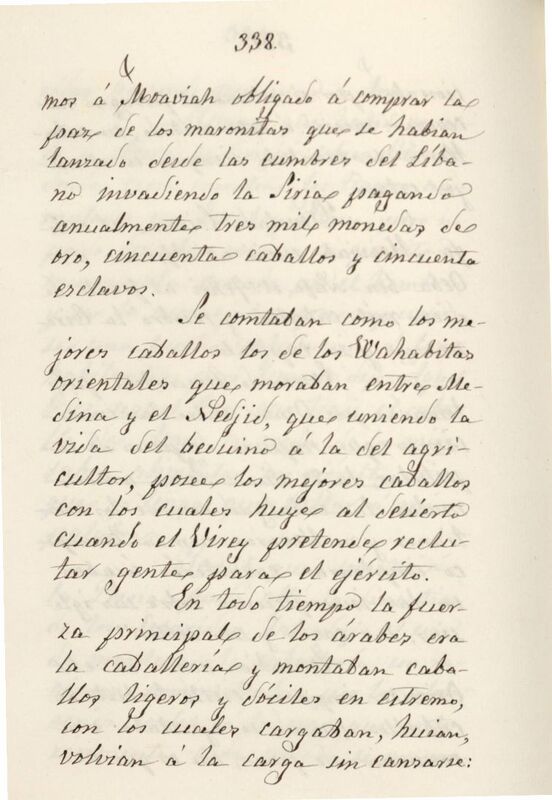 338.
mos á Moaviah obligado á comprar la
paz de los maronitas que se habian
lanzado desde las cumbres del Liba-
no invadiendo la Siria pagando
anualmente tres mil monedas de
oro, cincuenta caballos y cincuenta
esclavos.
Se contaban como los me-
jores caballos los de los Wahabitas
orientales que moraban entre Me-
dina y el Nedjid, que uniendo la
vida del beduino á la del agri-
cultor, posee los mejores caballos
con los cuales huye al desierto
cuando el Virey pretende reclu-
tar gente para el ejército.
En todo tiempo la fuer-
za principal de los árabes era
la caballería y montaban caba-
llos ligeros y dóciles en estremo,
con los cuales cargaban, huian,
volvian á la carga sin canzarse: